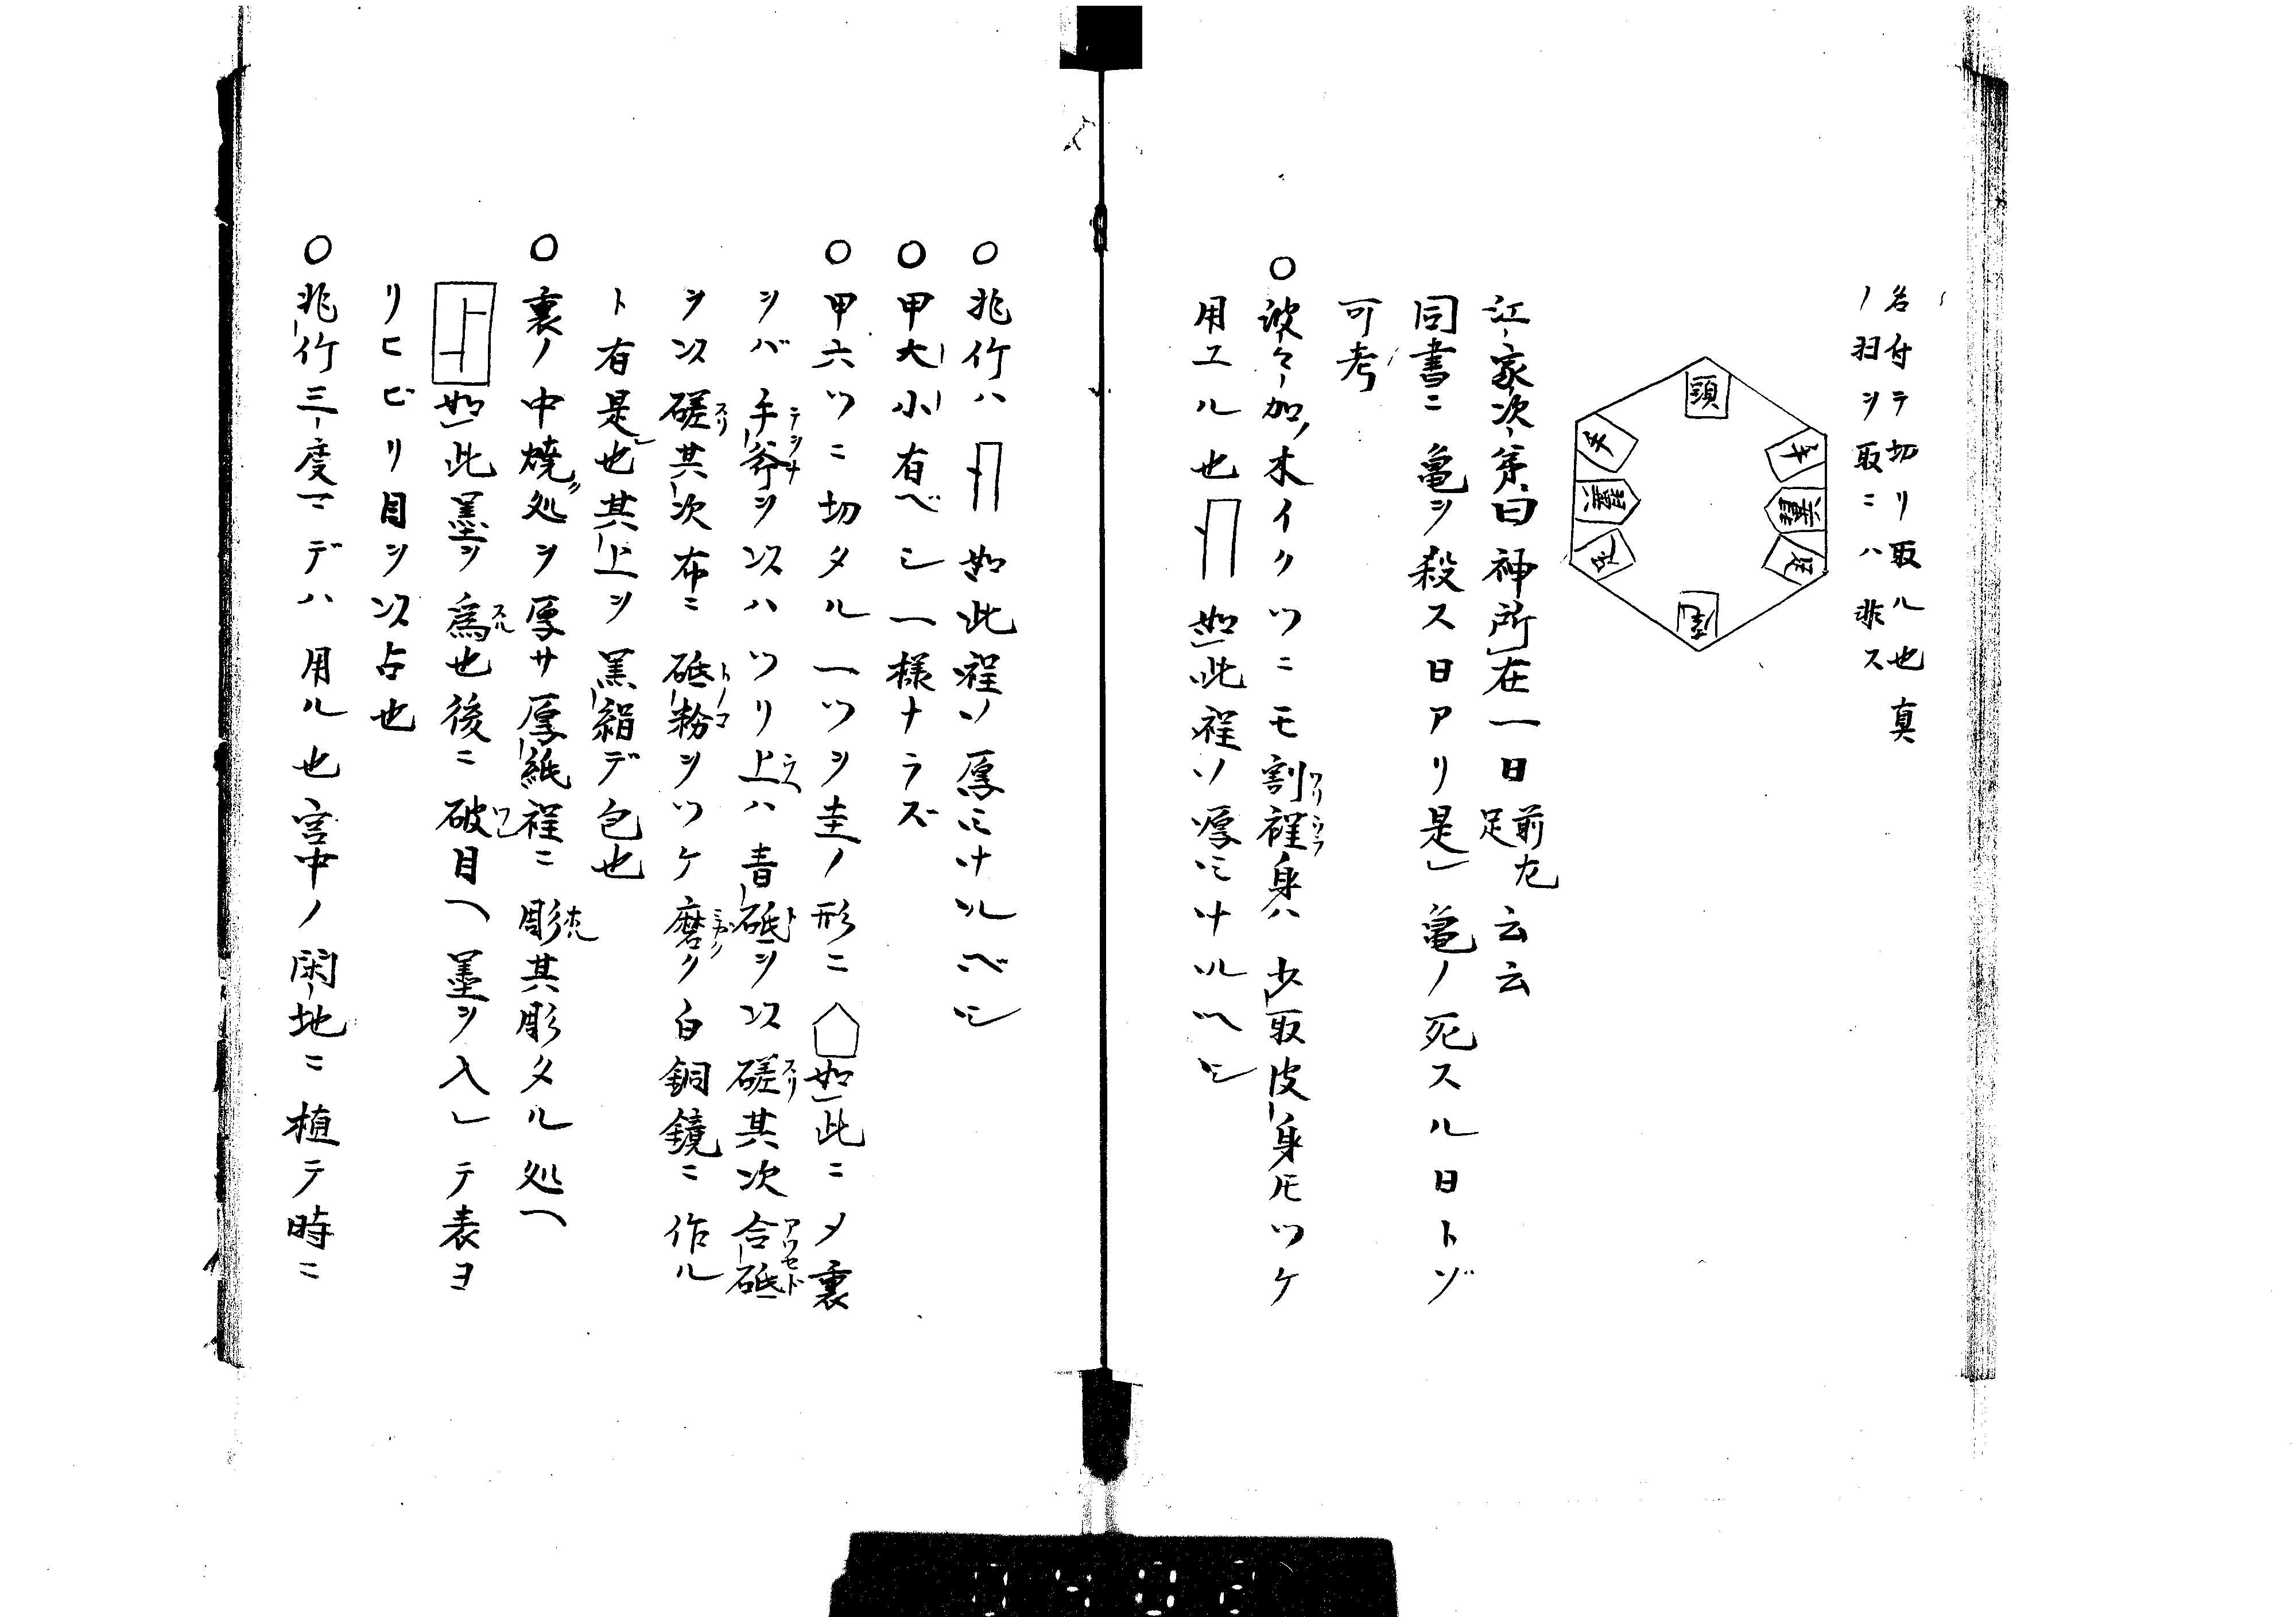 名付テ切リ取ル也真
ノ羽ヲ取ニハ非ス
頭
手
手
翼
翼
足
足
尾
江家次第曰神所在一日前左足云云
同書ニ亀ヲ殺ス日アリ是亀ノ死スル日トゾ
可考
○波々加ノ木イクツニモ割程身ハ少取皮身モツケ
ワリ
用ユル也
如此程ノ厚ミナルベシ
○兆竹ハ
如此程ノ厚ミナルベシ
○甲大小有ベシ一様ナラズ
○甲六ツニ切タル一ツヲ圭ノ形ニ
如此ニメ裏
ヲバ手斧ヲ以ハツリ上ハ青砥ヲ以磋其次合砥
テヲノ
ウヘ
ト
スリ
アワセド
ヲ以磋其次布ニ砥粉ヲツケ磨ク白銅鏡ニ作ル
スリ
トノコ
ミガク
ト有是也其上ヲ黒絹デ包也
○裏ノ中焼処ヲ厚サ厚紙程ニ彫其彫タル処ヘ
ホル
如此墨ヲ為也後ニ破目ヘ墨ヲ入レテ表ヨ
スル
ワレ
リヒビリ目ヲ以占也
○兆竹三度マデハ用ル也宮中ノ閑地ニ植テ時ニ